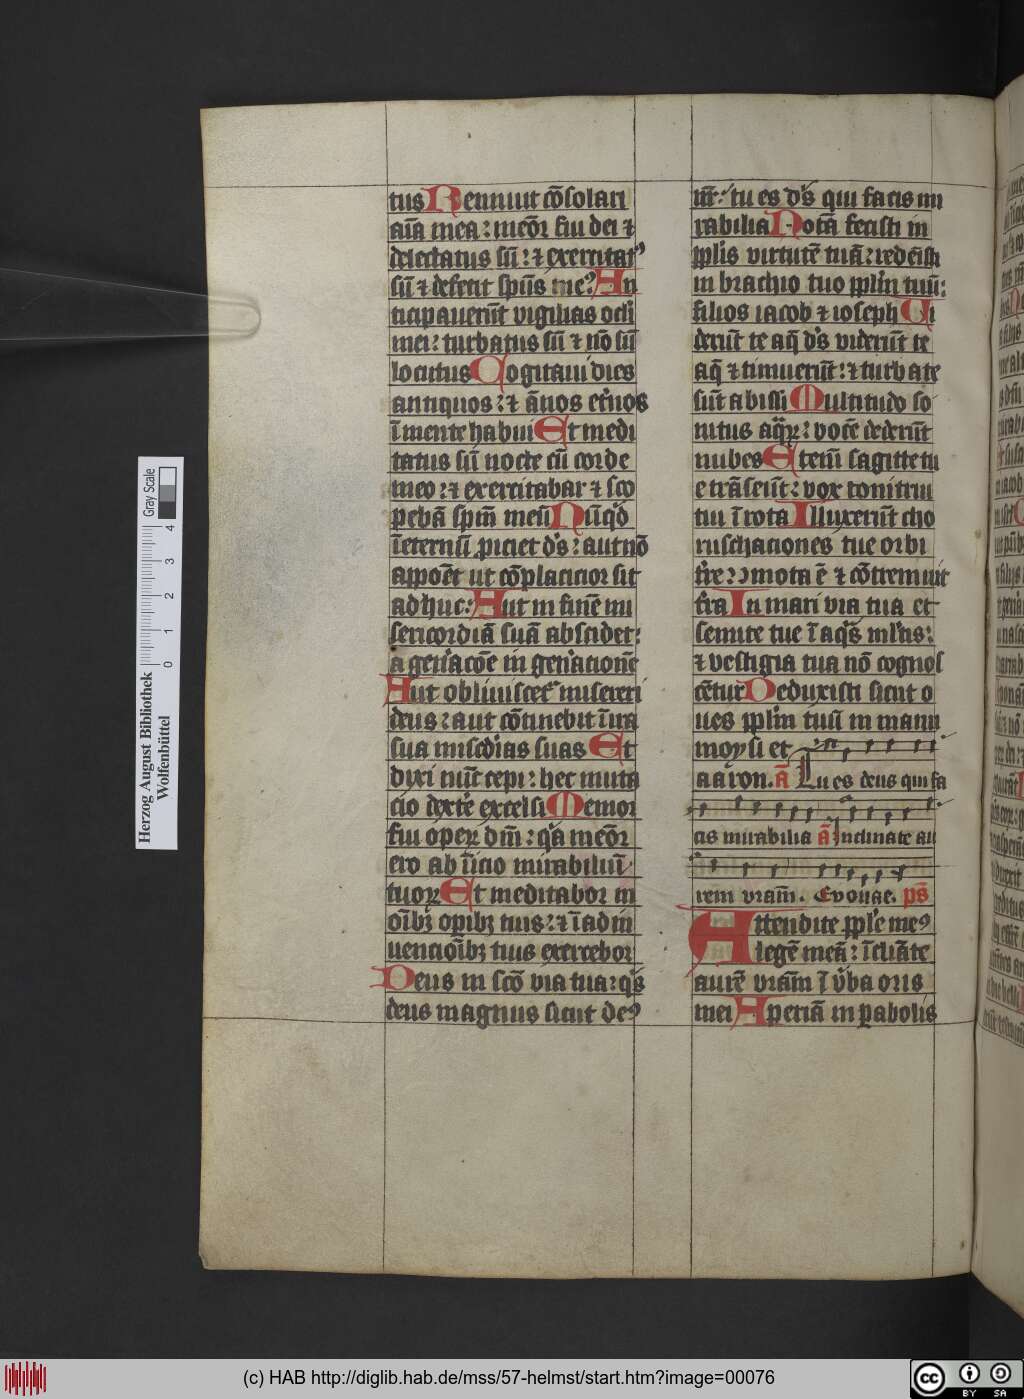 tus Rennuit cōsolari
aīa mea: meōꝛ fui dei ⁊
delectatus sū: ⁊ exercitatꝰ
sū ⁊ defecit spūs meꝰ An
ticipauerūt vigilias ocłi
mei: turbatus sū ⁊ nō sū
locutus Cogitaui dies
antiquos: ⁊ ānos et̄nos
ī mente habui Et medi
tatus sū nocte cū corde
meo: ⁊ exercitabar ⁊ sco
pebā spm̄ meū Nūqd
īeternū ꝓiciet ds̄: aut nō
appoēt ut cōplacicior sit
adhuc: Aut in finē mi
sericordiā suā abscidet:
a gen̄acōe in gen̄acionē
Aut obliuiscet̄ misereri
deus: aut cōtinebit ī ira
sua miscdias suas Et
dixi nūc cepi: hec muta
cio dext̄e excelsi Memor
fui operꝝ dm̄: qa meōꝛ
ero ab īicio mirabiliū
tuoꝝ Et meditabor in
oībꝫ opībꝫ tuis: ⁊ ī ad in
uencioībꝫ tuis exercebor
Deus in scō via tua: qs
deus magnus sicut deꝰ
nr̄: tu es ds̄ qui facis mi
rabilia Notā fecisti in
ppłis virtutē tuā: redeīsti
in brachio tuo ppłm tuū:
filios iacob ⁊ ioseph Vi
derūt te aq̄ ds̄ viderūt te
aq̄ ⁊ timuerūt: ⁊ turbate
sūt abissi Multitudo so
nitus aqꝝ: vocē dederūt
nubes Etenī sagitte tu
e trāseūt: vox tonitrui
tui ī rota Illuxerūt cho
ruschaciones tue orbi
tr̄e: ꝯmota ē ⁊ cōtremuit
tr̄a In mari via tua et
semite tue ī aqs ml̄tis:
⁊ vestigia tua nō cognos
cētur Deduxisti sicut o
ues ppłm tuū in manu
moysi et
aaron. ā Tu es deus qui fa
cis mirabilia ā Inclinate au
rem vram̄. Evouae. ps̄
Attendite ppłe meꝰ
legē meā: īclīate
aurē vram̄ ī v̄ba oris
mei Aperiā in pabolis
Herzog August Bibliothek
Wolfenbüttel
Gray Scale
0 1 2 3 4
(c) HAB http://diglib.hab.de/mss/57-helmst/start.htm?image=00076
cc BY SA